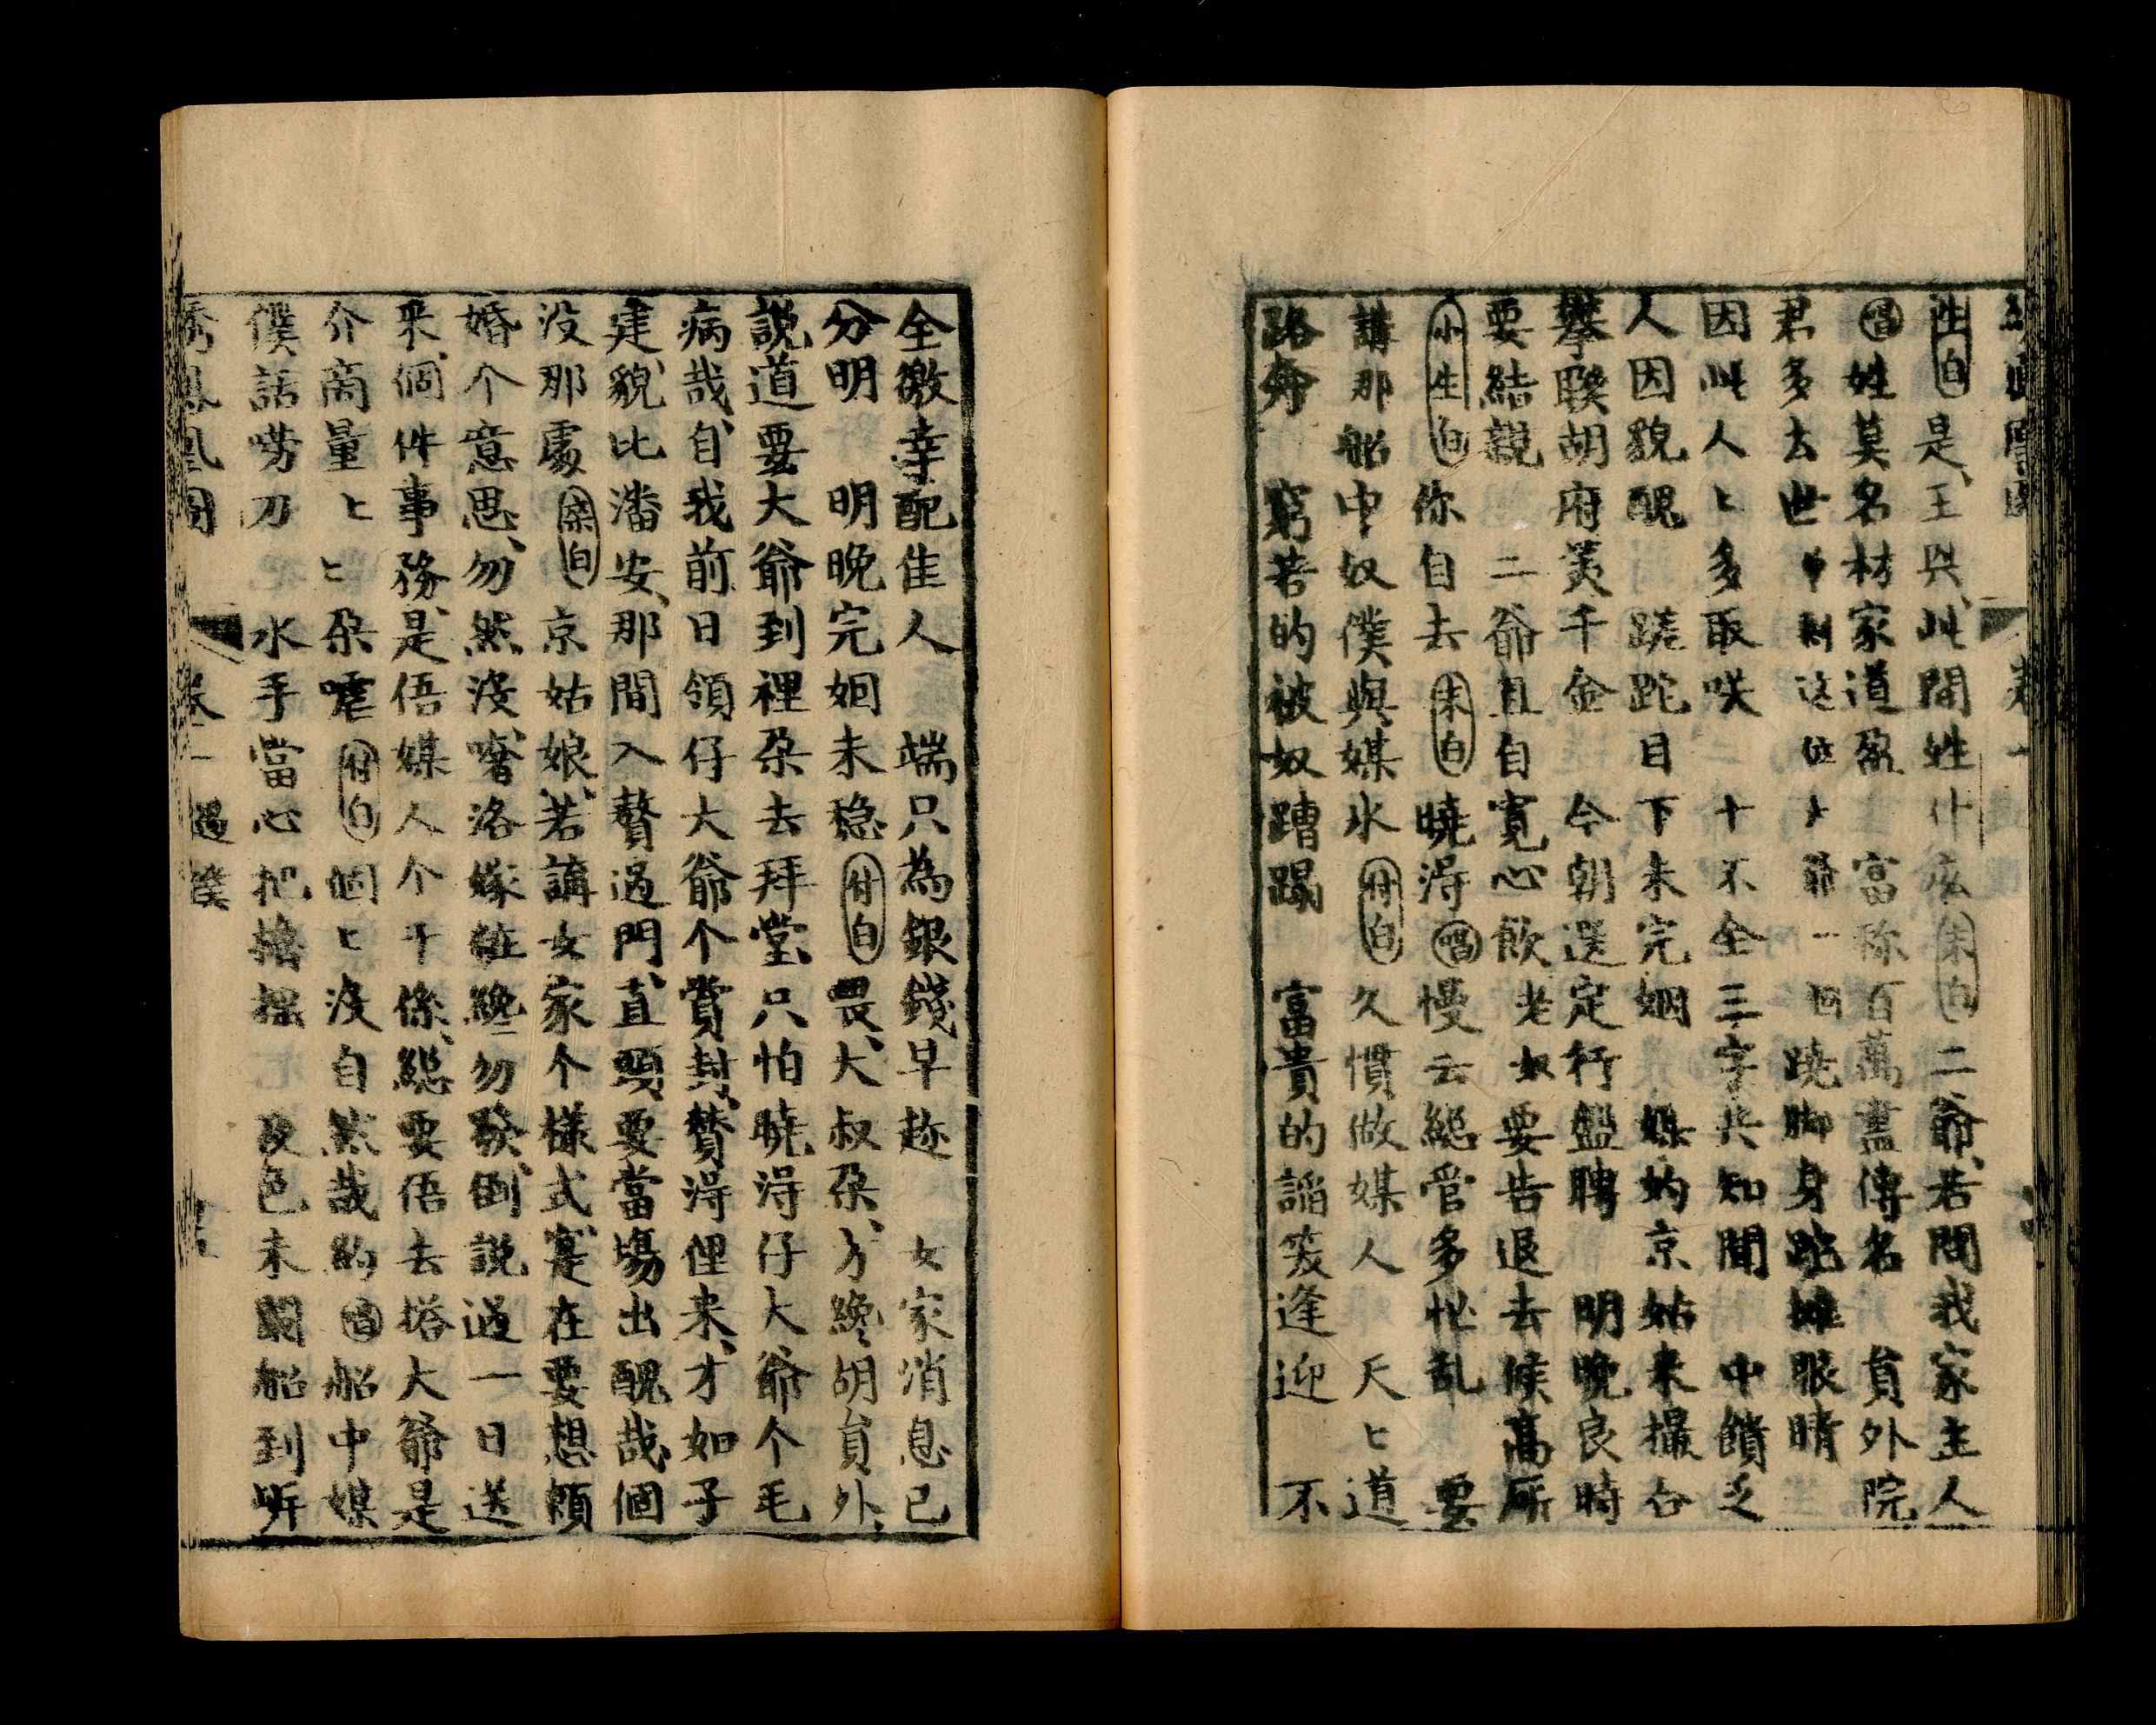 生白是王與此間姓什庅末白二爺若問我家主人
唱姓莫名材家道盈 富称百萬盡傳名 貟外院
君多去世 这位大爺一個 蹺脚身 眼睛
因此人〻多取咲 十不全三字共知聞 中饋乏
人因貌醜 蹺跎目下未完姻 媒妁京姑来撮合
攀联胡府美千金 今朝选定行盤聘 明晚良時
要結親 二爺且自寬心飲 老奴要告退去候髙厮
小生白你自去末白曉淂唱慢云縂管多忙乱 要
講那船中奴僕與媒氷 付白 久慣做媒人 天〻道
路奔 窮苦的被奴蹧蹋 富貴的謟笑逢迎 不
全徼幸配佳人 端只為銀錢早趂 女家消息已
分明 明晚完姻未稳 付白畏、大叔朶、方纔胡貟外、
説道要大爺到裡朶去拜堂、只怕曉淂仔大爺个毛
病哉、自我前日領仔大爺个賞封、賛淂俚来、才如子
建、貌比潘安、那間入贅過門、直頭要當塲出醜哉、個
没那處 京白京姑娘、若講女家个樣式、寔在要想頼
婚个意思、勿然没、啥洛嫁粧纔勿發、倒説過一日送
来、個件事務、是俉媒人个干係、縂要俉去搭大爺是
介商量〻〻朶嘘付白個〻没自然哉喲唱船中媒
僕話嘮刀 水手當心把櫓摇 夜色未闌船到岸
綉鳯凰圖 卷一 遇僕